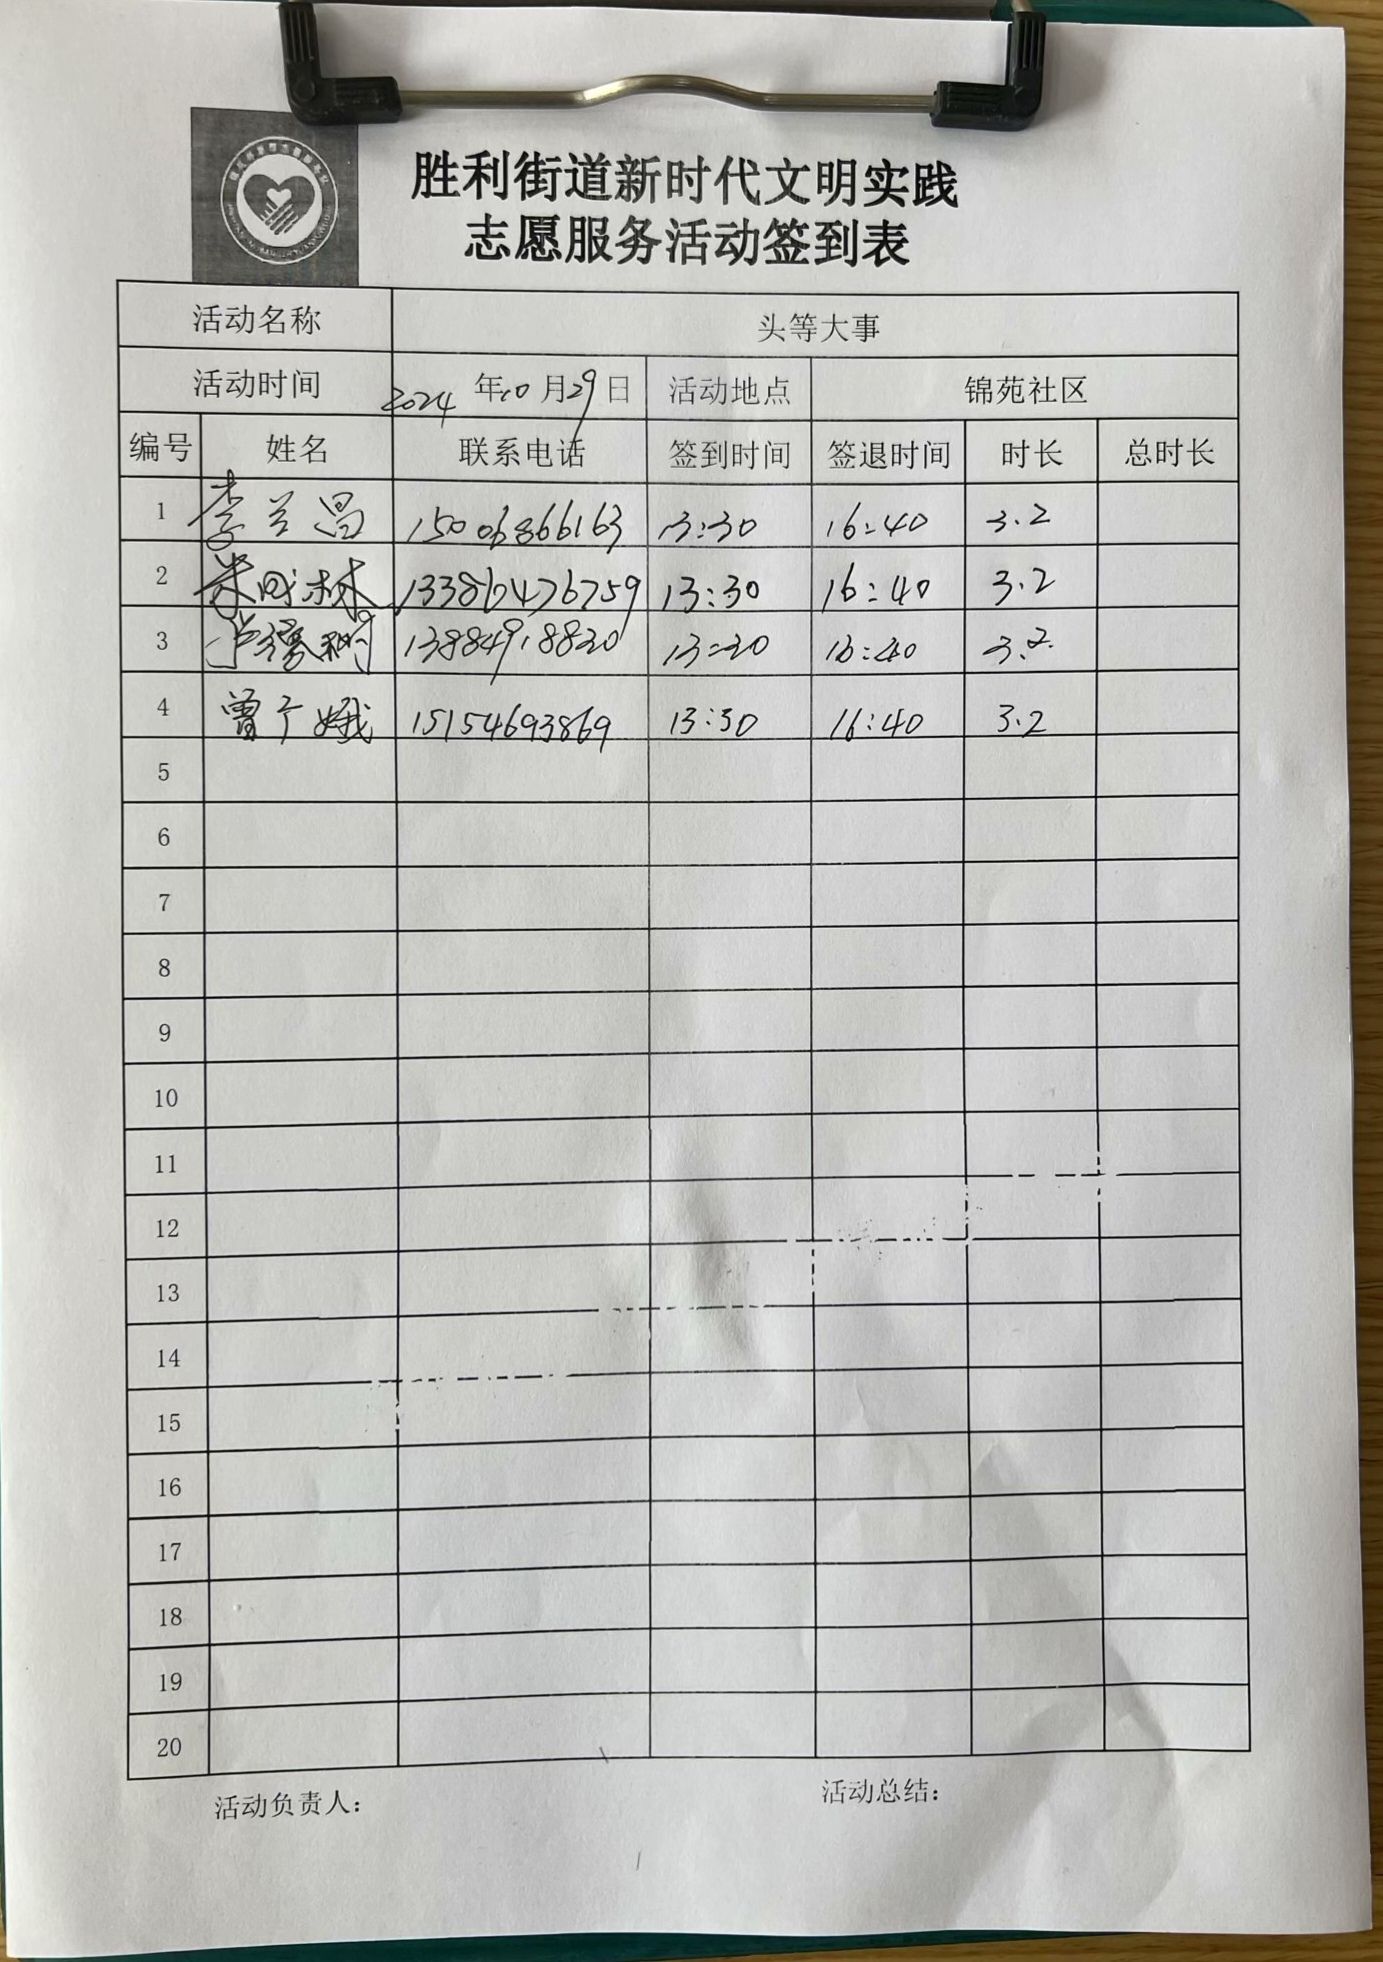 胜利街道新时代文明实践
志愿服务活动签到表
活动名称 头等大事
活动时间 2024 年10月29日 活动地点 锦苑社区
编号 姓名 联系电话 签到时间 签退时间 时长 总时长
1 李兰昌 15006866163 13:30 16:40 3.2
2 13386476759 13:30 16:40 3.2
3 13884918830 13:30 16:40 3.2
4 曾广娥 15154693869 13:30 16:40 3.2
5
6
7
8
9
10
11
12
13
14
15
16
17
18
19
20
活动负责人: 活动总结: